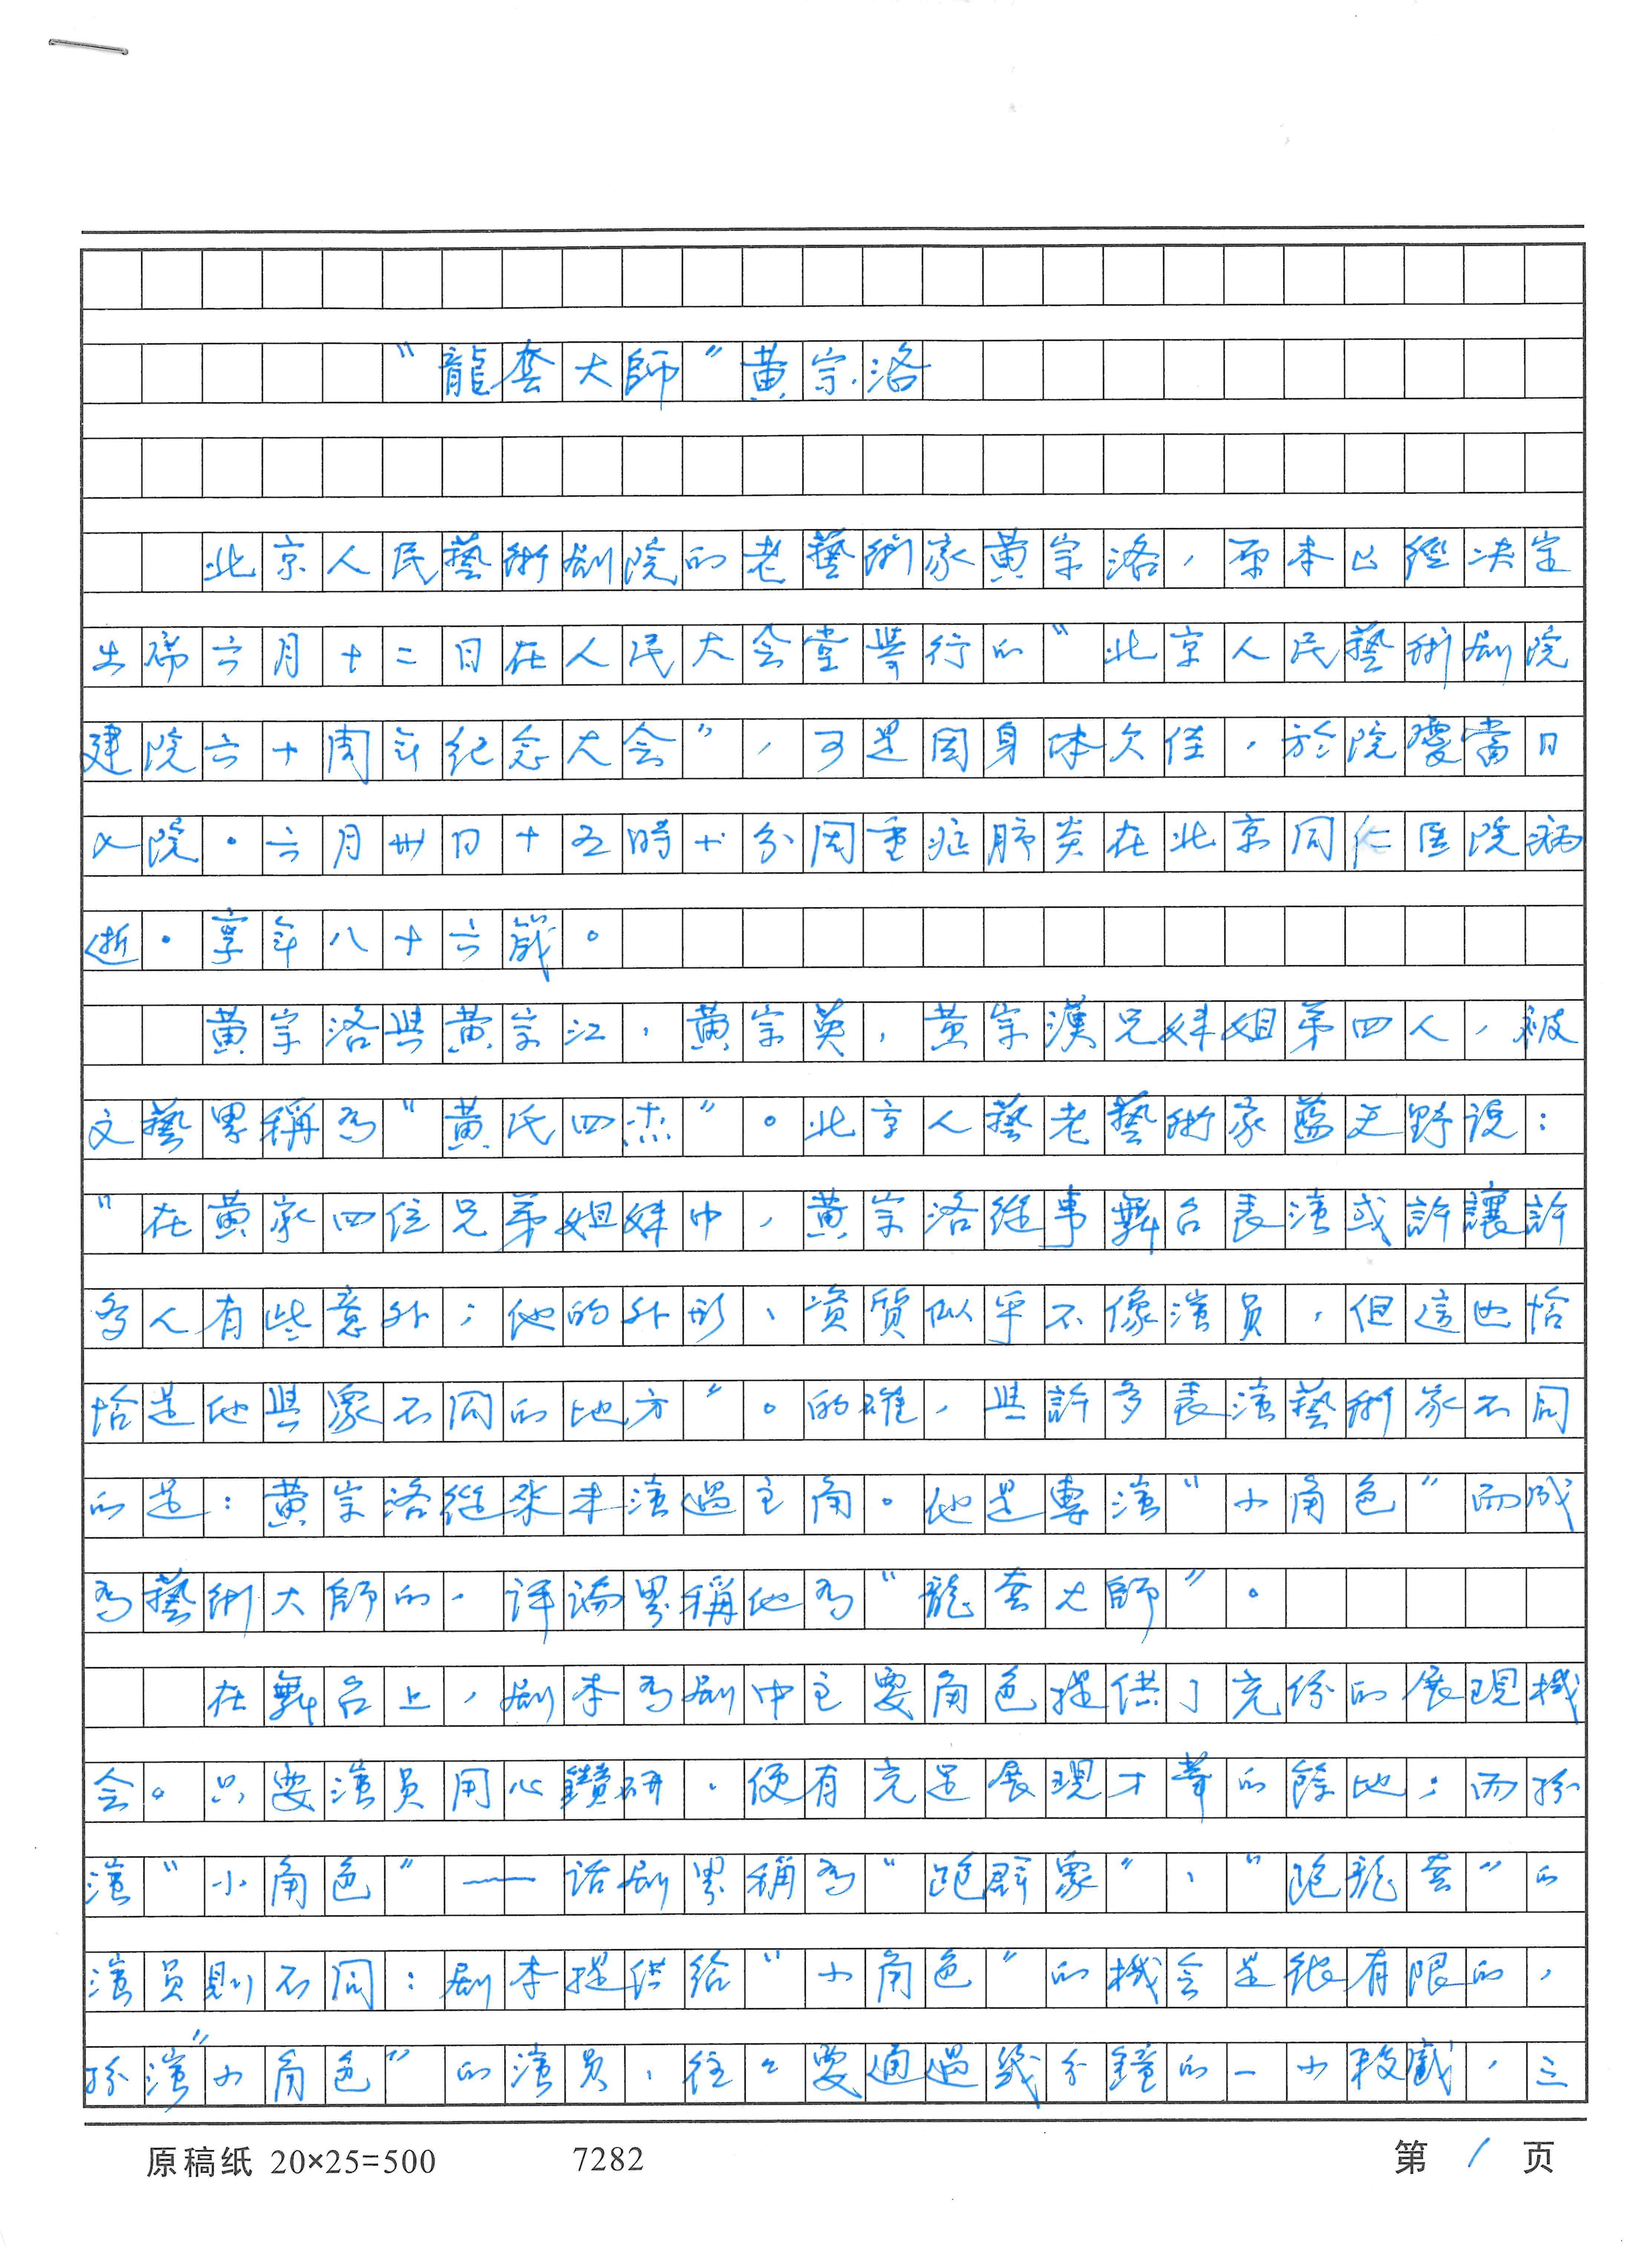 “龍套大師”黄宗洛
北京人民藝術劇院的老藝術家黄宗洛，原本已經决定
出席六月十二日在人民大会堂舉行的“北京人民藝術劇院
建院六十周年纪念大会”，可是因身体欠佳，於院慶當日
入院。六月卅日十五時十分因重症肺炎在北京同仁医院病
逝。享年八十六歲。
黄宗洛與黄宗江，黄宗英，黄宗漢兄妹姐弟四人，被
文藝界稱为“黄氏四杰”。北京人藝老藝術家藍天野说：
“在黄家四位兄弟姐妹中，黄宗洛從事舞台表演或許讓許
多人有些意外；他的外形、資質似乎不像演員，但這也恰
恰是他與眾不同的地方”。的確，與許多表演藝術家不同
的是：黄宗洛從来未演過主角。他是專演“小角色”而成
为藝術大師的，评論界稱他为“龍套大師”。
在舞台上，劇本为劇中主要角色提供了充份的展現機
会。只要演员用心鑽研，便有充足展現才華的餘地；而扮
演“小角色”——话劇界稱为“跑群眾”、“跑龍套”的
演员則不同：劇本提供给“小角色”的機会是很有限的，
扮演“小角色”的演员，往々要通過幾分鐘的一小段戲，三
原稿纸 20×25=500 7282 第 1 页